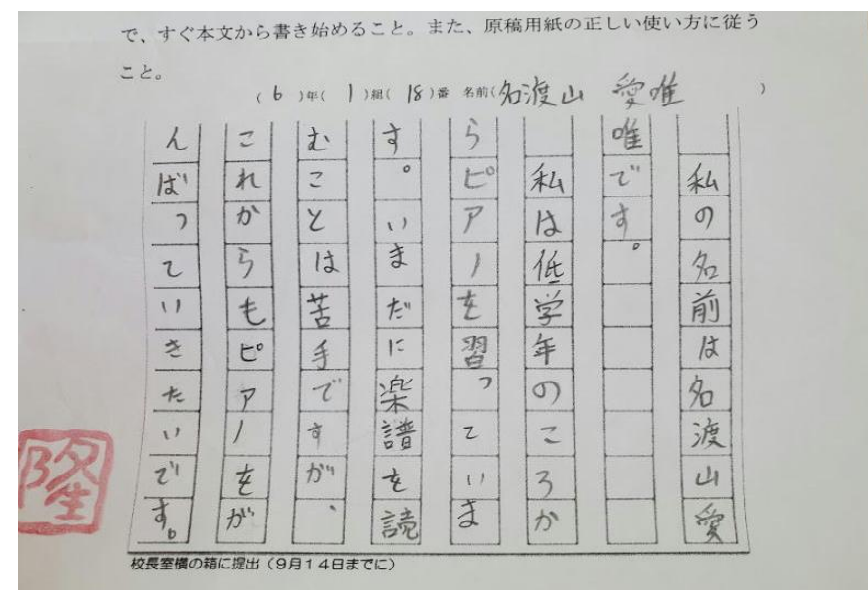 で、すぐ本文から書き始めること。また、原稿用紙の正しい使い方に従う
こと。
(6)年(1)組(18)番 名前(名渡山 愛唯)
私の名前は名渡山愛
唯です。
私は低学年のころか
らピアノを習っていま
す。いまだに楽譜を読
むことは苦手ですが、
これからもピアノをが
んばっていきたいです。
隆
校長室横の箱に提出(9月14日までに)